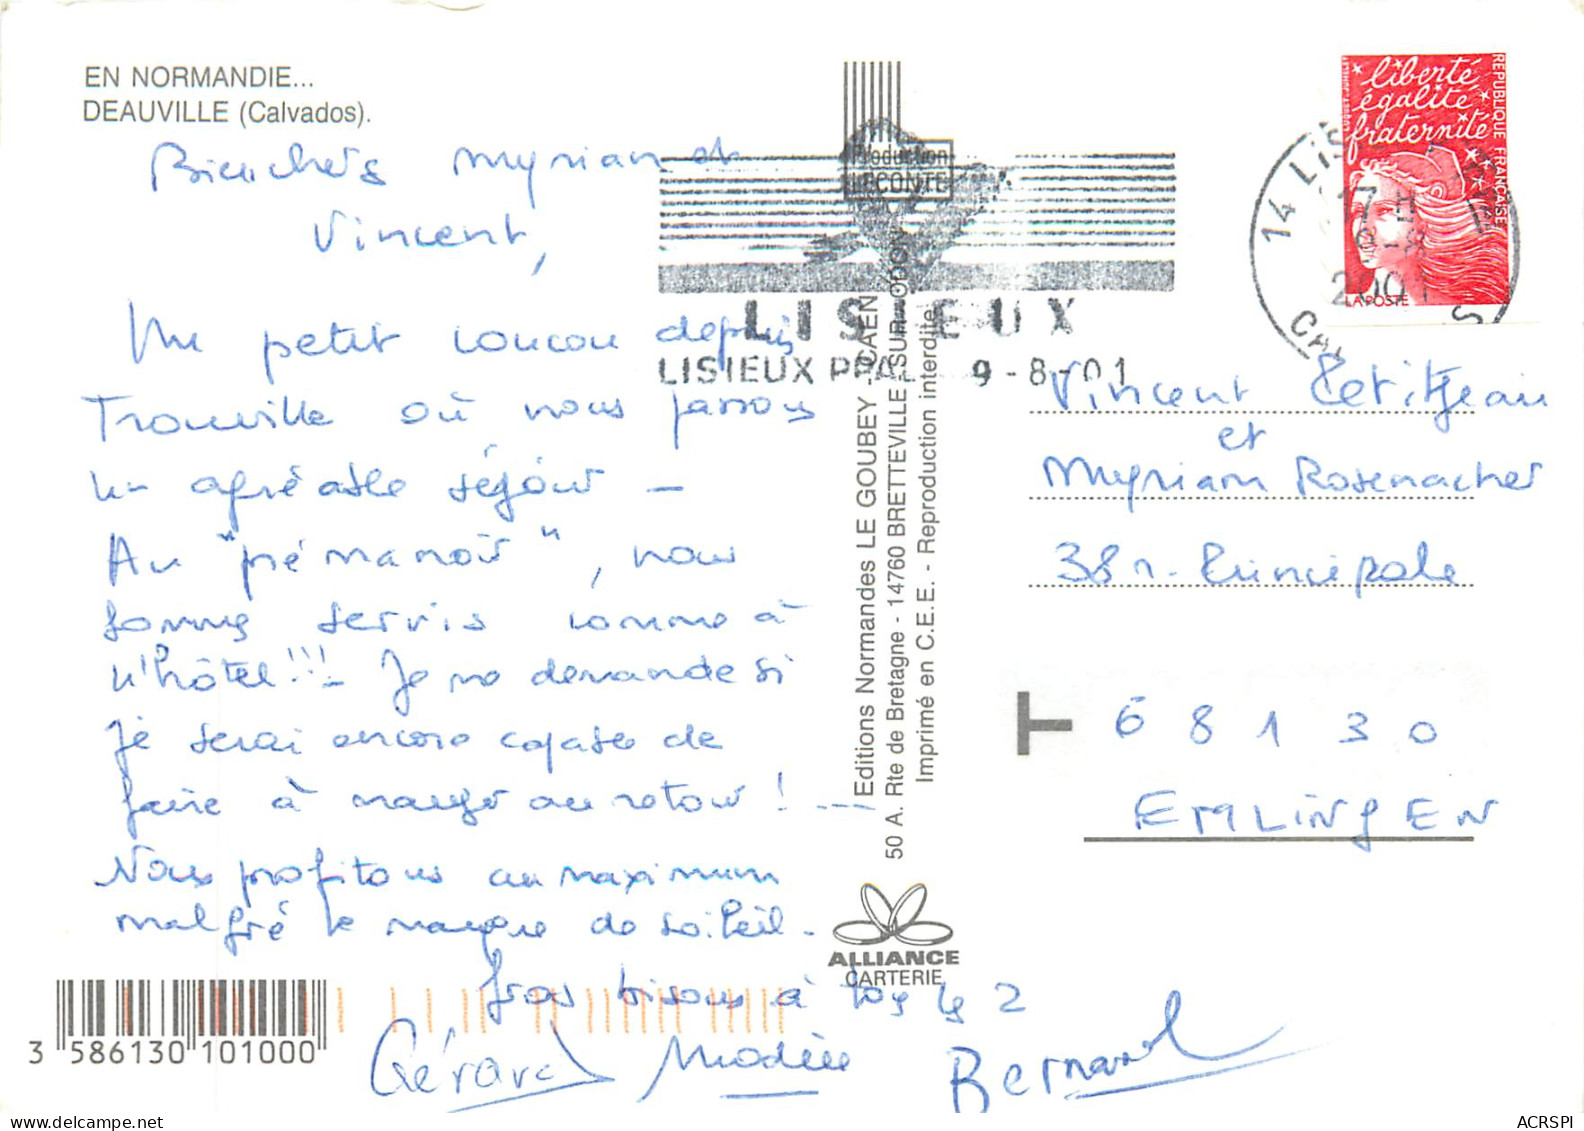 EN NORMANDIE...
DEAUVILLE (Calvados).
Bien chers Myriam et
Vincent,
Un petit coucou depuis
Trouville où nous passons
un agréable séjour -
Au "pré manoir", nous
sommes servis comme à
l'hôtel!!! - Je me demande si
je serai encore capable de
faire à manger au retour! ---
Nous profitons au maximum
malgré le manque de soleil.
Gros bisous à tous les 2
Gérard
Bernard
3 586130 101000
Production
LECONTE
LISIEUX
LISIEUX PPAL 9-8-01
Editions Normandes LE GOUBEY - CAEN
50 A. Rte de Bretagne - 14760 BRETTEVILLE-SUR-ODON
Imprimé en C.E.E. - Reproduction interdite
ALLIANCE
CARTERIE
liberté
égalité
fraternité
REPUBLIQUE FRANÇAISE
LA POSTE
14 LIS
CAL
Vincent Petitjean
et
Myriam Rosenacher
38 r. Principale
T
68130
EMLINGEN
ACRSPI